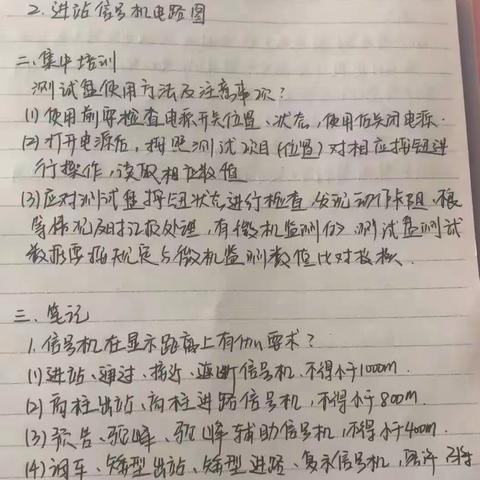 2. 进站信号机电路图
二、集中培训
测试盘使用方法及注意事项?
(1)使用前要检查电源开关位置、状态,使用后关闭电源.
(2)打开电源后,按照测试项目(位置)对相应按钮进
行操作,读取相应数值
(3)应对测试盘按钮状态进行检查,发现动作卡阻、
等情况及时汇报处理,有微机监测的,测试盘测试
数据要按规定与微机监测数值比对校核.
三、笔记
1.信号机在显示距离上有何要求?
(1)进站、通过、接近、遮断信号机,不得小于1000m.
(2)高柱出站、高柱进路信号机,不得小于800m.
(3)预告、驼峰、驼峰辅助信号机,不得小于400m.
(4)调车、矮型出站、矮型进路、复示信号机,容许、引导